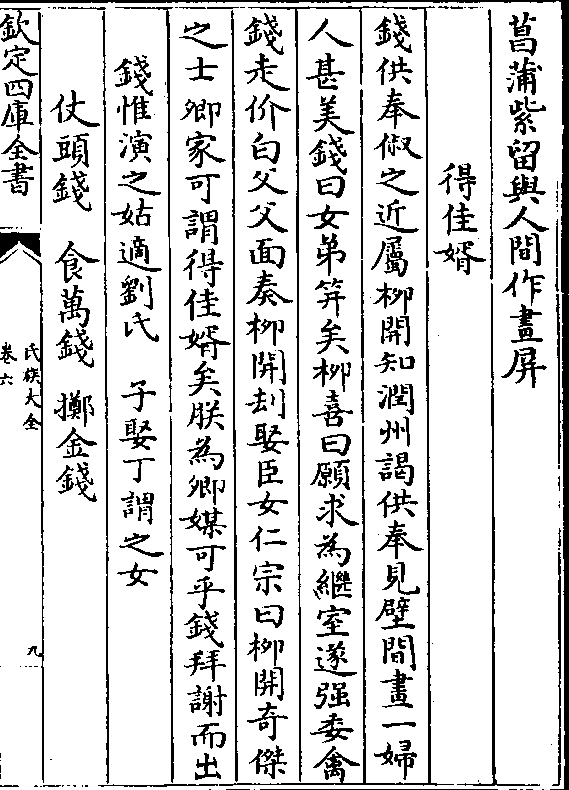 菖蒲紫留與人間作畫屏
得佳婿
錢供奉俶之近屬柳開知潤州謁供奉見壁間畫一婦
人甚美錢曰女弟笄矣柳喜曰願求為繼室遂强委禽
錢走价白父父面奏柳開刦娶臣女仁宗曰柳開奇傑
之士卿家可謂得佳婿矣朕為卿媒可乎錢拜謝而出
錢惟演之姑適劉氏　子娶丁謂之女
仗頭錢　食萬錢　擲金錢
欽定四庫全書
氏族大全
卷六
九